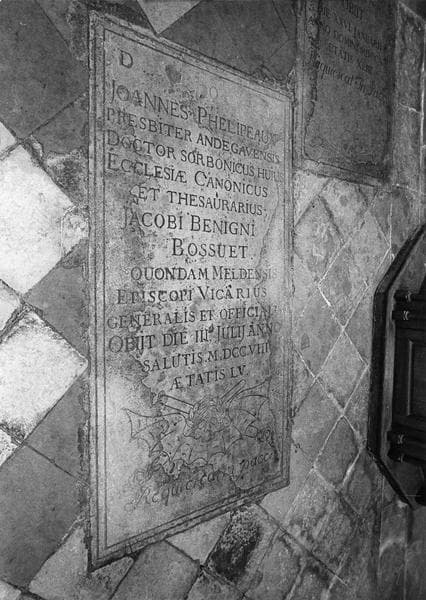 D O
JOANNES PHELIPEAUX
PRESBITER ANDEGAVENSIS
DOCTOR SORBONICUS HUIUS
ECCLESIÆ CANONICUS
ET THESAURARIUS
JACOBI BENIGNI
BOSSUET
QUONDAM MELDENSIS
EPISCOPI VICARIUS
GENERALIS ET OFFICIALIS
OBIJT DIE III JULIJ ANNO
SALUTIS M.DCC.VIII
ÆTATIS LV.
Requiescat in pace
XVI JANUARII
ÆTATIS
Requiescat in